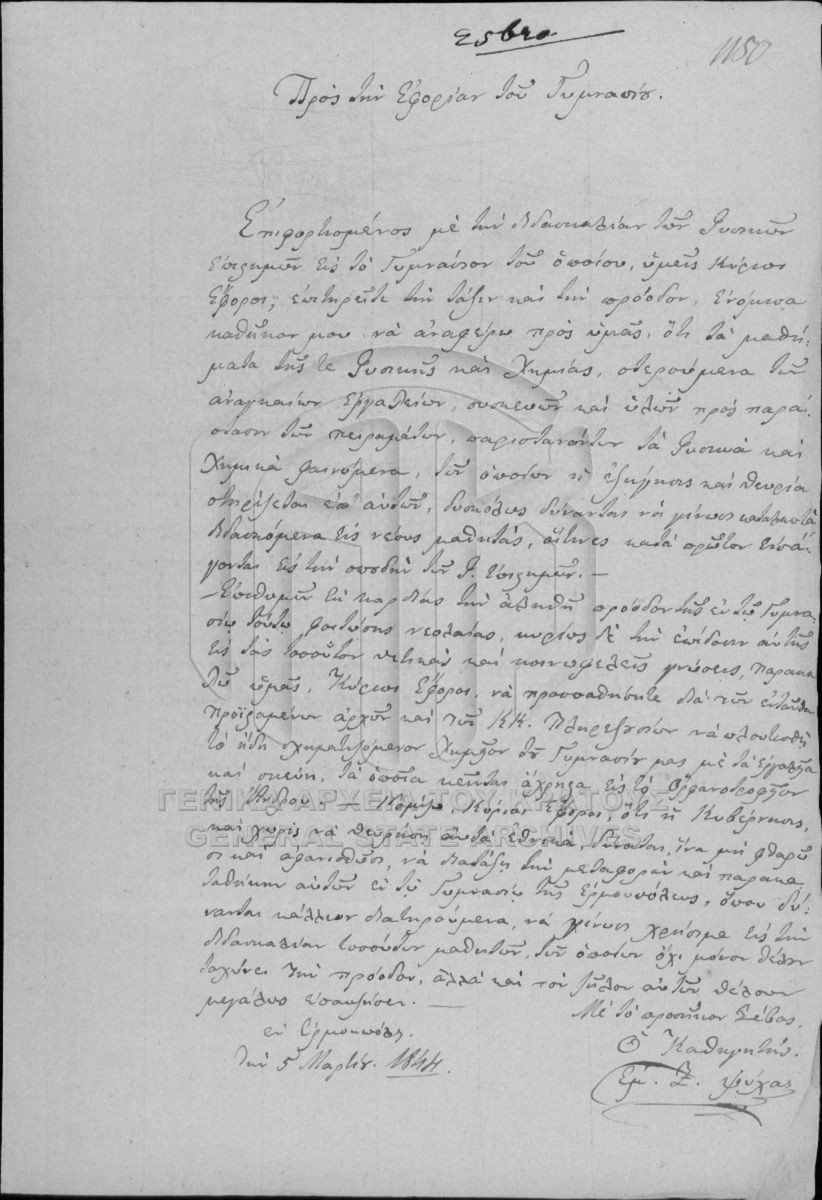 1150
Πρὸς τὴν Ἐφορίαν τοῦ Γυμνασίου.
Ἐπιφορτισμένος μὲ τὴν διδασκαλίαν τῶν Φυσικῶν
Ἐπιστημῶν εἰς τὸ Γυμνάσιον τοῦ ὁποίου, ὑμεῖς Κύριοι
Ἔφοροι, ἐπιτηρεῖτε τὴν τάξιν καὶ τὴν πρόοδον, ἐνόμισα
καθῆκον μου νὰ ἀναφέρω πρὸς ὑμᾶς, ὅτι τὰ μαθή-
ματα τῆς τε Φυσικῆς καὶ Χημίας, στερούμενα τῶν
ἀναγκαίων ἐργαλείων, συσκευῶν καὶ ὑλῶν πρὸς παρά-
στασιν τῶν πειραμάτων, παριστανόντων τὰ Φυσικὰ καὶ
Χημικὰ φαινόμενα, τῶν ὁποίων ἡ ἐξήγησις καὶ θεωρία
στηρίζεται ἐπ' αὐτῶν, δυσκόλως δύνανται νὰ γίνωσι καταληπτὰ
διδασκόμενα εἰς νέους μαθητάς, οἵτινες κατὰ πρῶτον εἰσά-
γονται εἰς τὴν σπουδὴν τῶν Φ. Ἐπιστημῶν. —
— Ἐπιθυμῶν ἐκ καρδίας τὴν ἀληθῆ πρόοδον τῆς ἐν τῷ Γυμνα-
σίῳ τούτῳ φοιτώσης νεολαίας, κυρίως δὲ τὴν ἐπίδοσιν αὐτῆς
εἰς τὰς τοσοῦτον θετικὰς καὶ κοινωφελεῖς γνώσεις, παρακα
λῶ ὑμᾶς, Κύριοι Ἔφοροι, νὰ προσπαθήσητε διὰ τῶν ἐνταῦθα
προϊσταμένων ἀρχῶν καὶ τῶν Κ.Κ. Πληρεξουσίων νὰ πλουτισθῇ
τὸ ἤδη σχηματιζόμενον Χημεῖον τοῦ Γυμνασίου μας μὲ τὰ ἐργαλεῖα
καὶ σκεύη, τὰ ὁποῖα κεῖνται ἄχρηστα εἰς τὸ Ὀρφανοτροφεῖον
τῆς Ἄνδρου. — Νομίζω, Κύριοι Ἔφοροι, ὅτι ἡ Κυβέρνησις,
καὶ χωρὶς νὰ θεωρήσῃ αὐτὰ ἐθνικά, δύναται, ἵνα μὴ φθαρῶ
σι καὶ ἀφανισθῶσι, νὰ διατάξῃ τὴν μεταφορὰν καὶ παρακα
ταθήκην αὐτῶν ἐν τῷ Γυμνασίῳ τῆς Ἑρμουπόλεως, ὅπου δύ-
νανται κάλλιον διατηρούμενα, νὰ γίνωσι χρήσιμα εἰς τὴν
διδασκαλίαν τοσούτων μαθητῶν, τῶν ὁποίων ὄχι μόνον θέλουν
ταχύνει τὴν πρόοδον, ἀλλὰ καὶ τὸν ζῆλον αὐτῶν θέλουν
μεγάλως ἐπαυξήσει. —
Μὲ τὸ προσῆκον Σέβας.
ἐν Ἑρμουπόλει
τὴν 5 Μαρτίου. 1844.
Ὁ Καθηγητής.
Ἐμ. Ζ. Ψύχας
ΓΕΝΙΚΑ ΑΡΧΕΙΑ ΤΟΥ ΚΡΑΤΟΥΣ
GENERAL STATE ARCHIVES